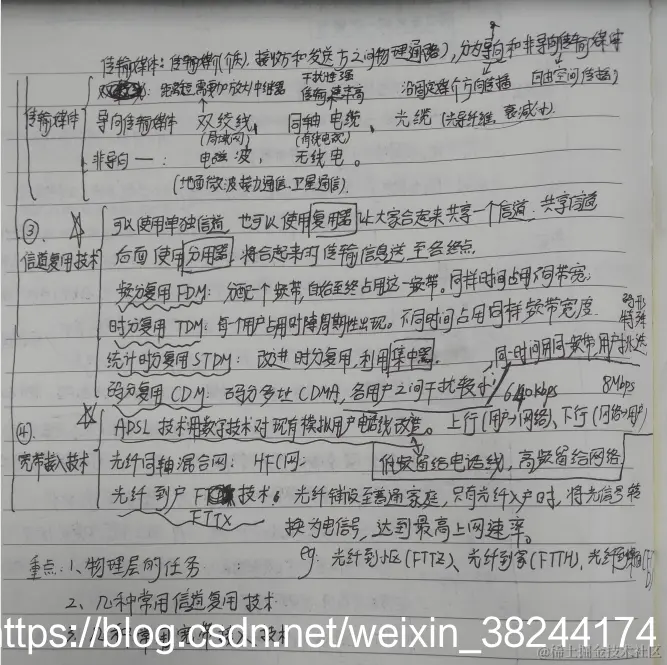 传输媒体：传输媒介(介质)，接收方和发送方之间物理通路，分为导向和非导向传输媒体
双绞线：距离远需要加放大中继器 干扰性强 传输速率高 沿固定某个方向传播 自由空间传播)
传输媒体 导向传输媒体 双绞线，同轴电缆、光缆(光导纤维，衰减小)
(局域网) (有线电视)
非导向一一：电磁波，无线电。
(地面微波接力通信、卫星通信)
③ 可以使用单独信道，也可以使用复用器让大家合起来共享一个信道：共享信道
信道复用技术 后面使用分用器，将合起来的传输信息送至各终点。
频分复用FDM：分配一个频带，自始至终占用这一频带。同样时间占用不同带宽；
时分复用TDM：每一个用户占用时隙周期性出现。不同时间占用同样频带宽度 码形特殊
统计时分复用STDM：改进时分复用，利用集中器。 同一时间用同一频带用户挑选
码分复用CDM：码分多址CDMA，各用户之间干扰较小 640kbps 8Mbps
④ ADSL技术用数字技术对现有模拟用户电话线改造。上行(用户→网络)、下行(网络→用户)
宽带接入技术 光纤同轴混合网：HFC网 低频留给电话线，高频留给网络
光纤到户 技术：光纤铺设至普通家庭，只有光纤入户时，将光信号转
FTTX 换为电信号，达到最高上网速率。
eg：光纤到小区(FTTZ)、光纤到家(FTTH)，光纤到
重点：1、物理层的任务
2、几种常用信道复用技术
3、几种常用宽带接入技术
https://blog.csdn.net/weixin_38244174
@稀土掘金技术社区